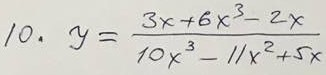 10. y = \frac{3x+6x^3-2x}{10x^3-11x^2+5x}